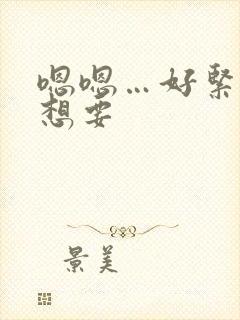 嗯嗯…好緊
想要
景美